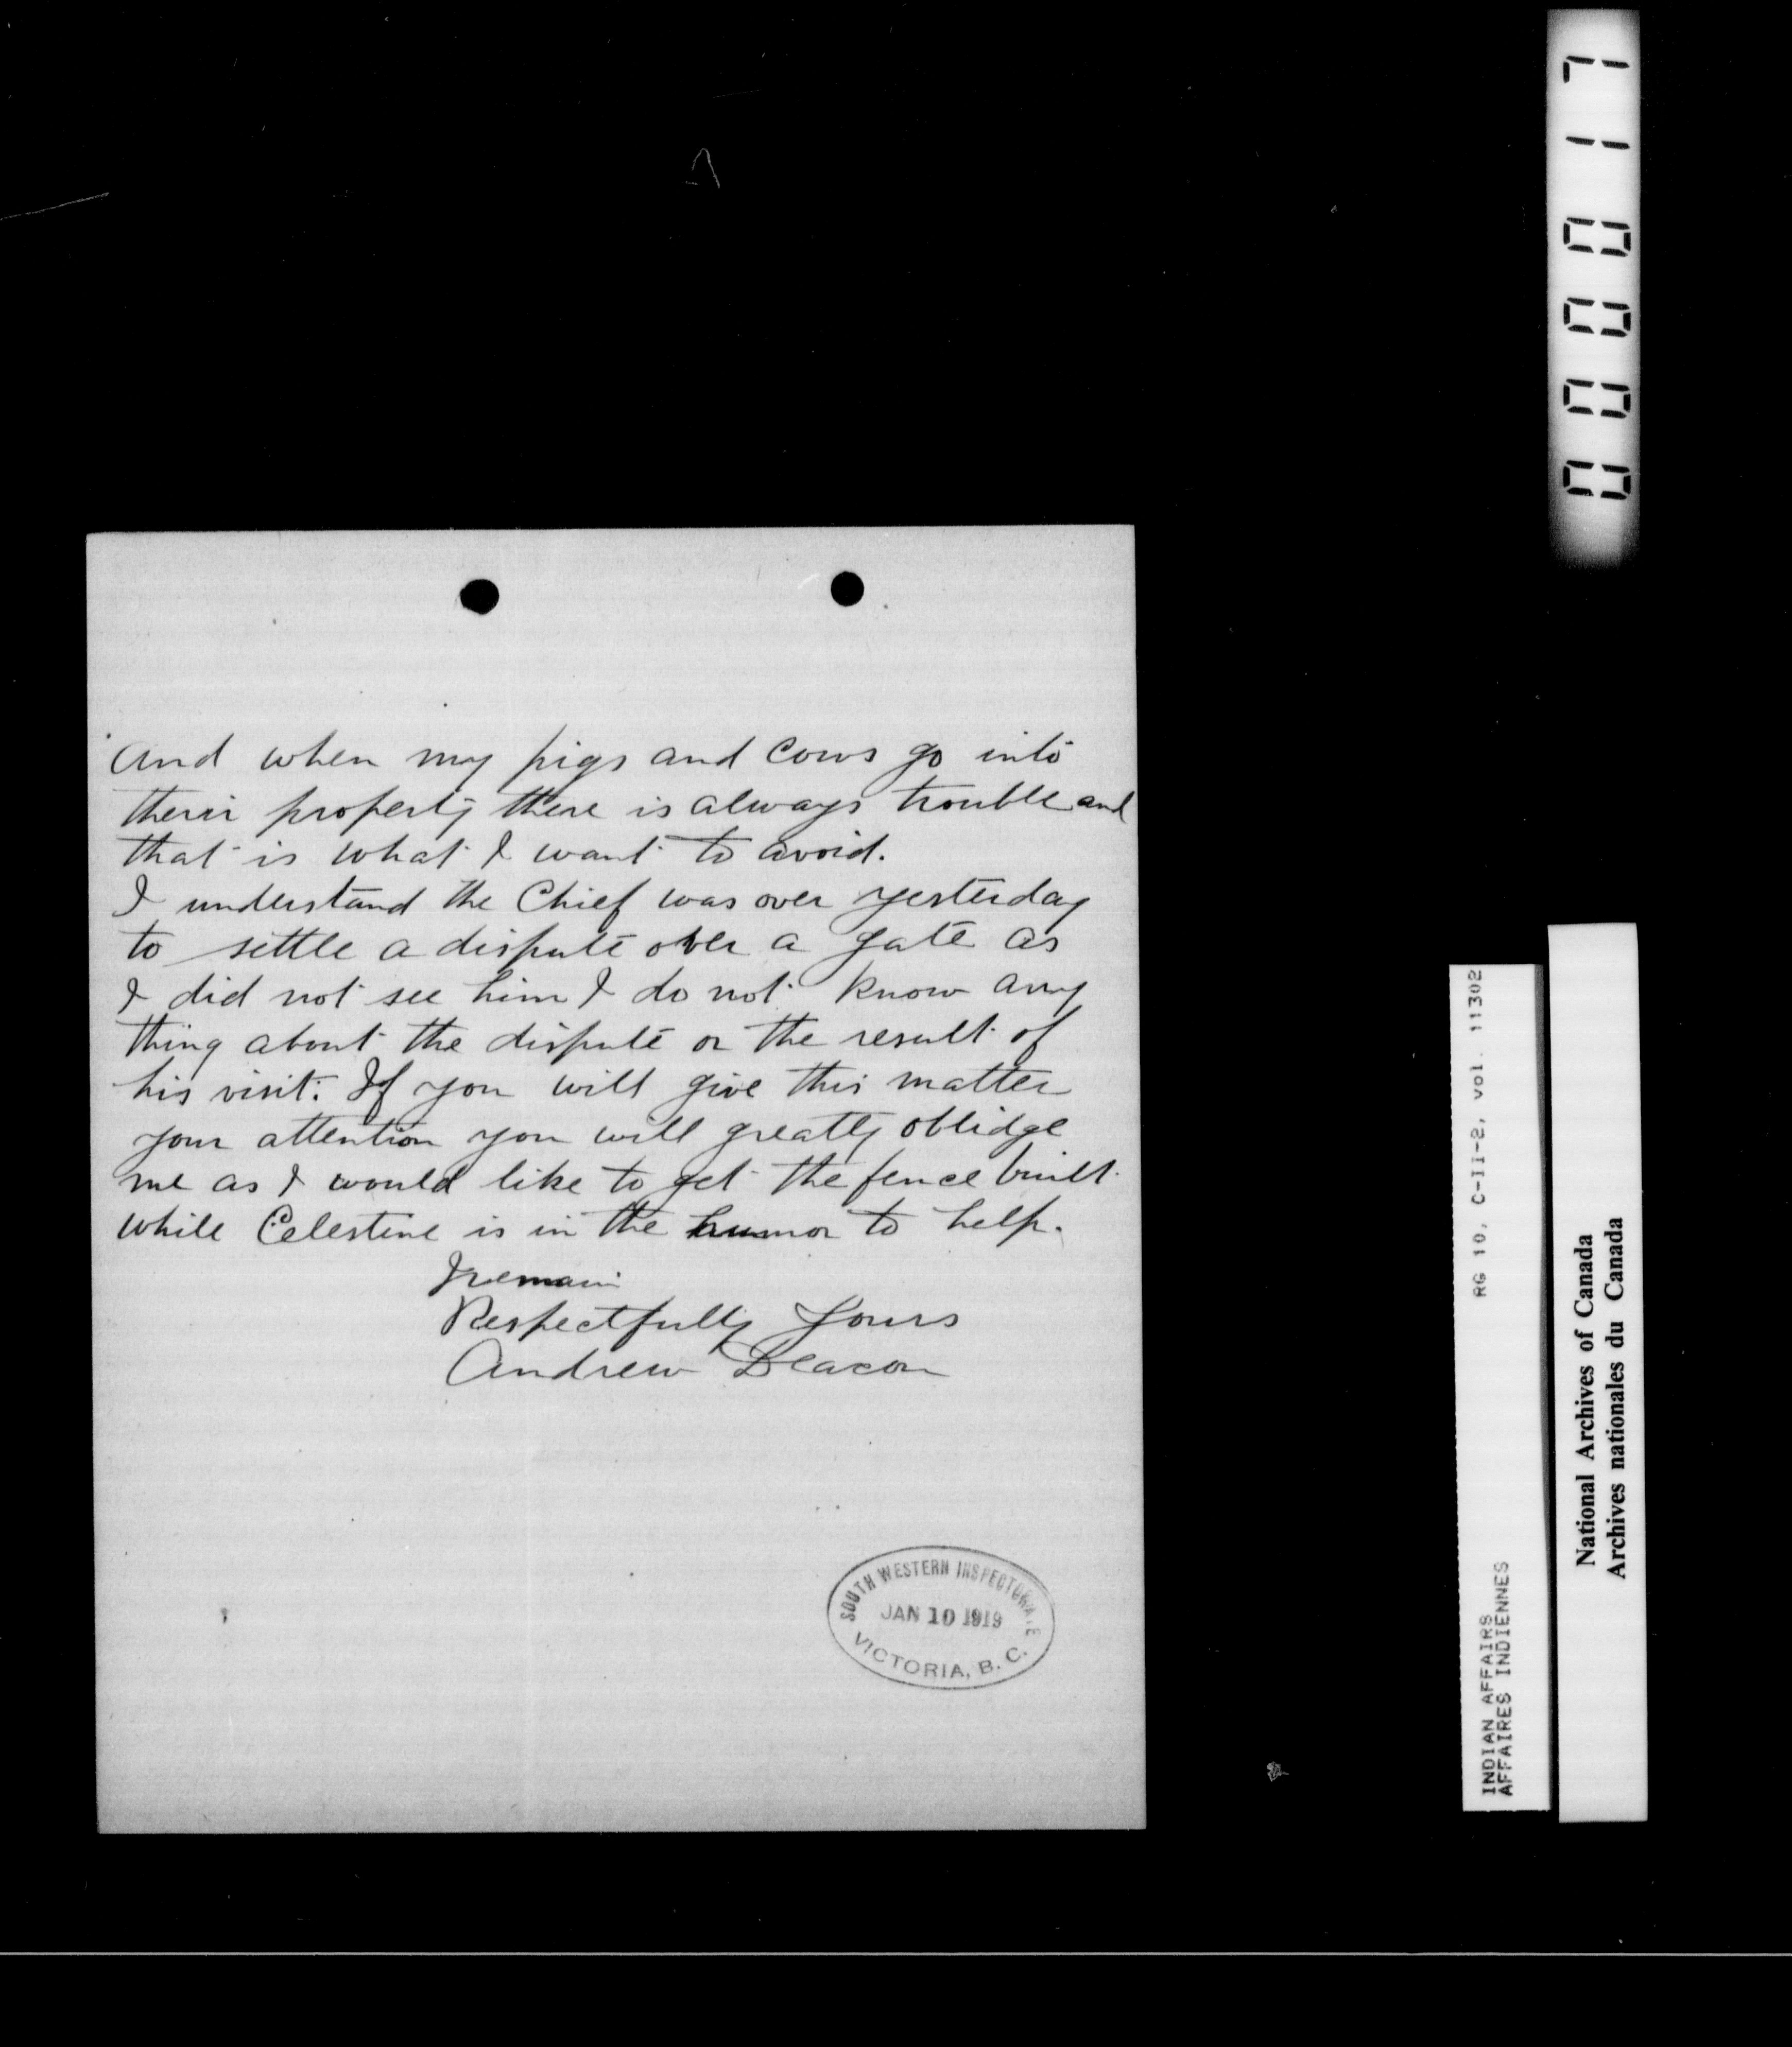 And when my pigs and cows go into
their property there is always trouble and
that is what I want to avoid.
I understand the Chief was over yesterday
to settle a dispute over a gate as
I did not see him I do not know any
thing about the dispute or the result of
his visit. If you will give this matter
your attention you will greatly oblidge
me as I would like to get the fence built
while Celestine is in the humor to help.
I remain
Respectfully Yours
Andrew Deacon
SOUTH WESTERN INSPECTORATE
JAN 10 1919
VICTORIA, B. C.
000017
RG 10, C-II-2, vol. 11302
INDIAN AFFAIRS
AFFAIRES INDIENNES
National Archives of Canada
Archives nationales du Canada